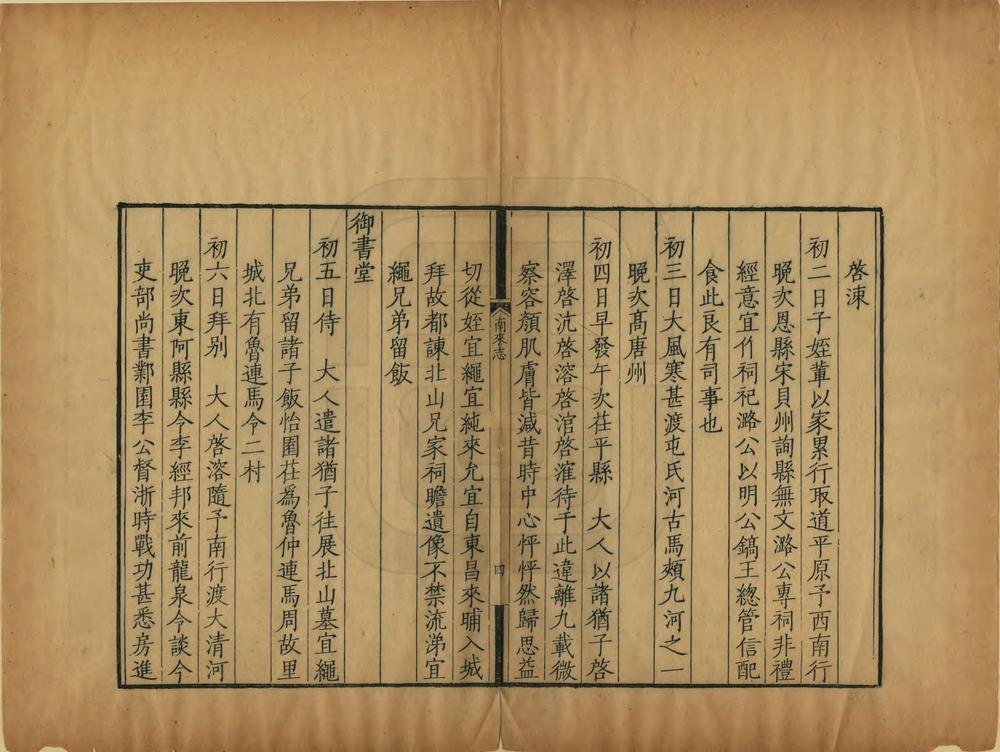 啓涑
初二日子姪軰以家累行取道平原予西南行
晚次恩縣宋貝州詢縣無文潞公專祠非禮
經意宜作祠祀潞公以明公鎬王總管信配
食此良有司事也
初三日大風寒甚渡屯氏河古馬頰九河之一
晚次髙唐州
初四日早發午次茌平縣　大人以諸猶子啓
澤啓沆啓溶啓涫啓漼待于此違離九載微
察容顔肌膚皆減昔時中心怦怦然歸思益
切從姪宜繩宜純來允宜自東昌來晡入城
拜故都諫北山兄家祠瞻遺像不禁流涕宜
繩兄弟留飯
御書堂
初五日侍　大人遣諸猶子往展北山墓宜繩
兄弟留諸子飯怡園茌爲魯仲連馬周故里
城北有魯連馬令二村
初六日拜别　大人啓溶隨予南行渡大清河
晚次東阿縣縣令李經邦來前龍泉令談今
吏部尚書鄴園李公督浙時戰功甚悉房進
南來志
四